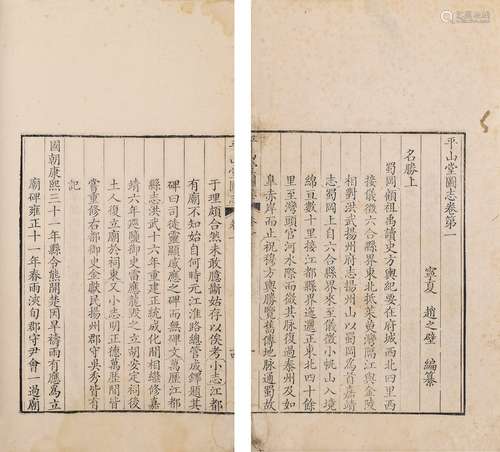 平山堂圖志卷第一
寧夏 趙之壁 編纂
名勝上
蜀岡顧祖禹讀史方輿紀要在府城西北四里西
接儀徵六合縣界東北抵茱萸灣隔江與金陵
相對洪武揚州府志揚州山以蜀岡為首嘉靖
志蜀岡上自六合縣界來至儀徵小帆山入境
綿亘數十里接江都縣界迤邐正東北四十餘
里至灣頭官河水際而微其脉復過泰州及如
臯赤岸而止祝穆方輿勝覽舊傳地脉通蜀故
于理頗合然未敢應斷姑存以俟考小志江都
有廟不知始自何時元江淮路總管成鐸題其
碑曰司徒靈顯感應之碑而無碑文萬歷江都
縣志洪武十六年重建正統成化間相繼修嘉
靖六年廵鹽御史雷應龍毀之立胡安定祠後
土人復立廟於祠東又小志明正德萬歷間皆
嘗重修右都御史金獻民揚州郡守吳秀皆有
記
國朝康熙三十一年縣令熊開楚因旱禱雨有應爲立
廟碑雍正十一年春雨浹旬郡守尹會一過廟
平山堂圖志
卷一